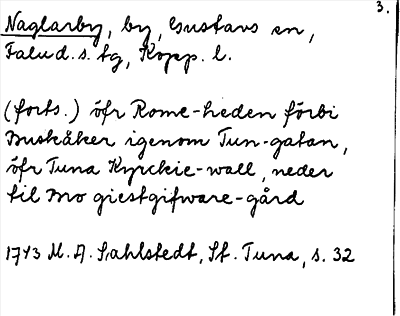 3.
Naglarby, by, Gustavs sn,
Falu d. s. tg, Kopp. l.
(forts.) öfr Rome-heden förbi
Buskåker igenom Tun-gatan,
öfr Tuna Kyrckie-wall, neder
til Mo giestgifware-gård
1743 M. A. Sahlstedt, St. Tuna, s. 32